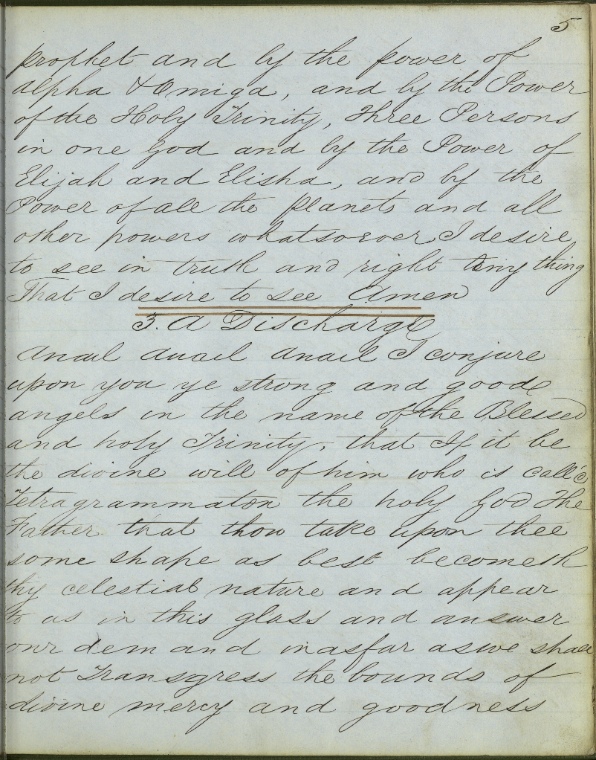 5
prophet and by the power of
Alpha & Omiga, and by the Power
of the Holy Trinity, Three Persons
in one God and by the Power of
Elijah and Elisha, and by the
Power of all the Planets and all
other powers whatsoever I desire
to see in truth and right Any thing
That I desire to see Amen
3. A Discharge
Anail Anail Anail I conjure
upon you ye strong and good
angels in the name of the Blessed
and holy Trinity, that If it be
the divine will of him who is call'd
Tetragrammaton the holy God The
Father that thou take upon thee
some shape as best becometh
thy celestial nature and appear
to as in this glass and answer
our demand inasfar as we shall
not Transgress the bounds of
divine mercy and goodness